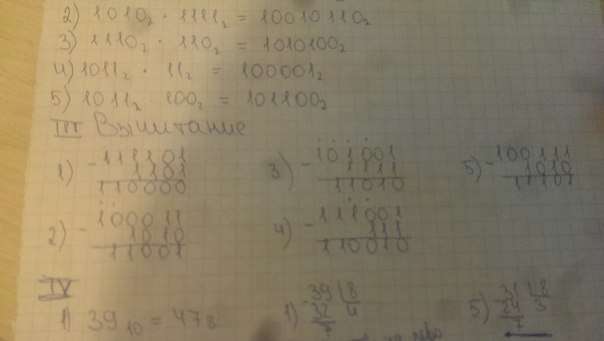 2) 1010₂ · 1111₂ = 10010110₂
3) 1110₂ · 110₂ = 1010100₂
4) 1011₂ · 11₂ = 100001₂
5) 1011₂ 100₂ = 101100₂
III Вычитание
1) - 111101
1101
110000
3) - 101001
1111
11010
5) - 100111
1010
11101
2) - 100011
1010
11001
4) - 111001
111
110010
IV
1) 39₁₀ = 47₈
1) 39 8
32 4
7
5) 31 8
24 3
7